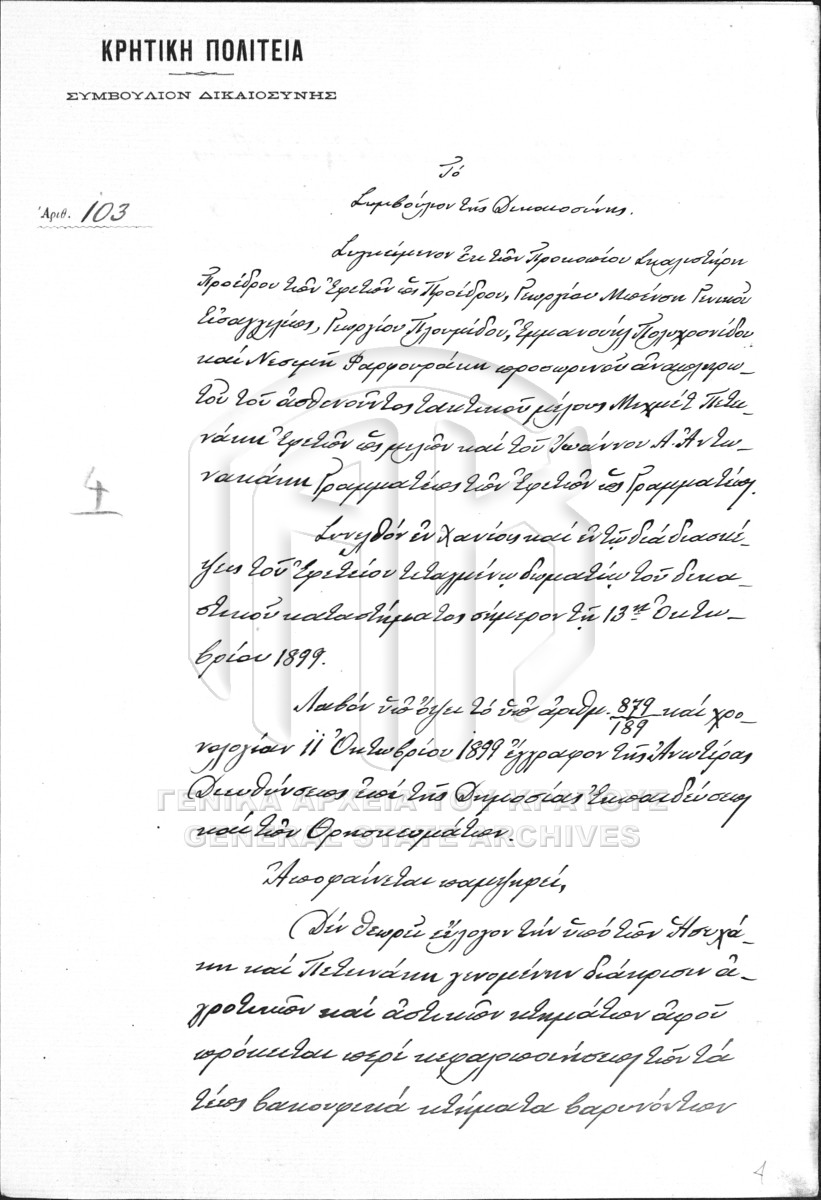 ΚΡΗΤΙΚΗ ΠΟΛΙΤΕΙΑ
ΣΥΜΒΟΥΛΙΟΝ ΔΙΚΑΙΟΣΥΝΗΣ
Ἀριθ. 103
Τό
Συμβούλιον τῆς Δικαιοσύνης.
Συγκείμενον ἐκ τῶν Προκοπίου Σκαλιστήρη
Προέδρου τῶν Ἐφετῶν ὡς Προέδρου, Γεωργίου Μπένση Γενικοῦ
Εἰσαγγελέως, Γεωργίου Πλουμίδου, Ἐμμανουήλ Πολυχρονίδου
καί Νεσιμῆ Φαρφουράκη προσωρινοῦ ἀναπληρω-
τοῦ τοῦ ἀσθενοῦντος τακτικοῦ μέλους Μεχμέτ Πετι-
νάκη Ἐφετῶν ὡς μελῶν καί τοῦ Ἰωάννου Α. Ἀντω-
νακάκη Γραμματέως τῶν Ἐφετῶν ὡς Γραμματέως.
4
Συνελθόν ἐν Χανίοις καί ἐν τῷ διά διασκέ-
ψεις τοῦ Ἐφετείου τεταγμένῳ δωματίῳ τοῦ δικα-
στικοῦ καταστήματος σήμερον τῇ 13ῃ Ὀκτω-
βρίου 1899.
Λαβόν ὑπ' ὄψει τό ὑπ' ἀριθμ. 879/189 καί χρο-
νολογίαν 11 Ὀκτωβρίου 1899 ἔγγραφον τῆς Ἀνωτέρας
Διευθύνσεως ἐπί τῆς Δημοσίας Ἐκπαιδεύσεως
καί τῶν Θρησκευμάτων.
ΓΕΝΙΚΑ ΑΡΧΕΙΑ ΤΟΥ ΚΡΑΤΟΥΣ
GENERAL STATE ARCHIVES
Ἀποφαίνεται παμψηφεί,
Δέν θεωρεῖ εὔλογον τήν ὑπό τῶν Ἀσεχά-
κη καί Πετινάκη γενομένην διάκρισιν ἀ-
γροτικῶν καί ἀστικῶν κτημάτων ἀφοῦ
πρόκειται περί κεφαλοποιήσεως τῶν τά
τέως βακουφικά κτήματα βαρυνόντων
4